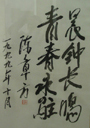 晨钟长鸣
青春永驻
陈章方
一九九七年十月